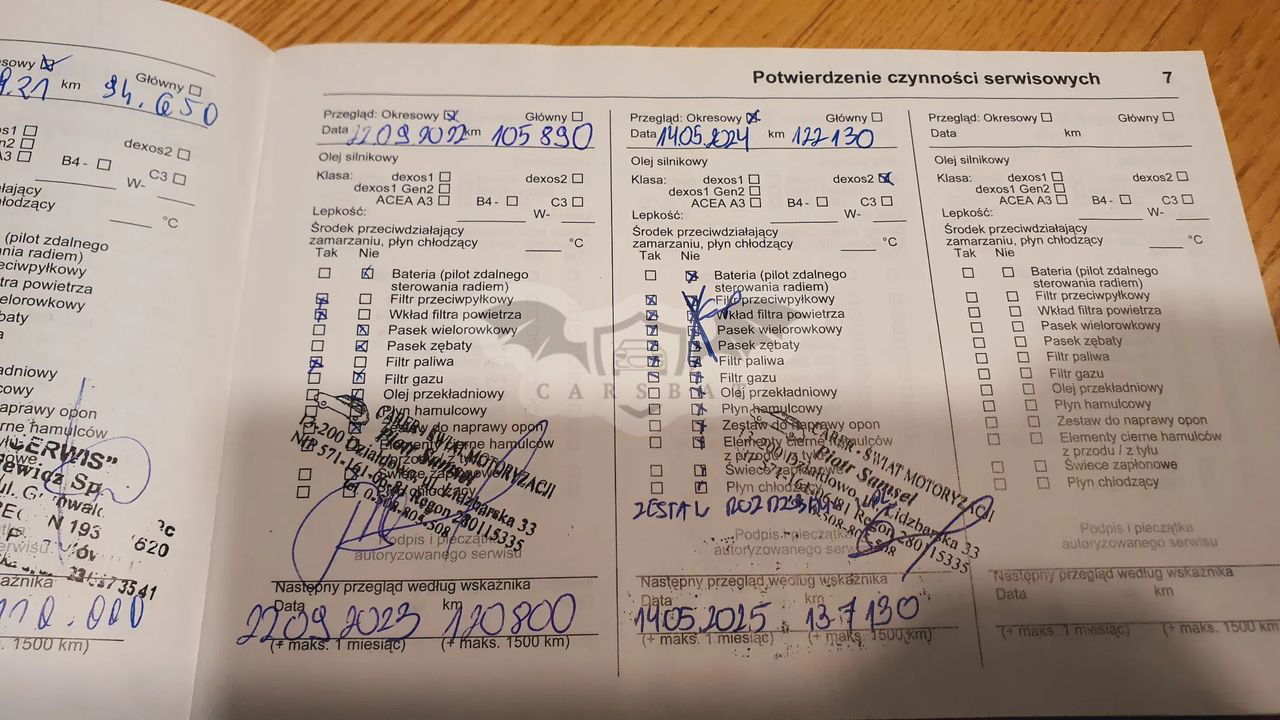 Potwierdzenie czynności serwisowych 7
esowy
Główny
9.21 km 94.650
os1
n2
A3
dexos2
B4 -
C3
W-
łający
hłodzący
°C
(pilot zdalnego
wania radiem)
rzeciwpyłkowy
tra powietrza
ielorowkowy
baty
adniowy
cowy
naprawy opon
erne hamulców
ERWIS"
ewicz Sp.
N 193
620
3541
serwisu
kaźnika
110.000
. 1500 km)
Przegląd: Okresowy Główny
Data 22.09.2022 km 105 890
Olej silnikowy
Klasa: dexos1 dexos2
dexos1 Gen2
ACEA A3 B4 - C3
Lepkość: W-
Środek przeciwdziałający
zamarzaniu, płyn chłodzący °C
Tak Nie
Bateria (pilot zdalnego
sterowania radiem)
Filtr przeciwpyłkowy
Wkład filtra powietrza
Pasek wielorowkowy
Pasek zębaty
Filtr paliwa
Filtr gazu
Olej przekładniowy
Płyn hamulcowy
Zestaw do naprawy opon
Elementy cierne hamulców
z przodu / z tyłu
Świece zapłonowe
Płyn chłodzący
ŚWIAT MOTORYZACJI
Piotr Sumsel
13-200 Działdowo, ul. Lidzbarska 33
Regon 280115335
Podpis i pieczątka
autoryzowanego serwisu
Następny przegląd według wskaźnika
Data km
22.09.2023 120800
(+ maks. 1 miesiąc) (+ maks. 1500 km)
Przegląd: Okresowy Główny
Data 14.05.2024 km 122 130
Olej silnikowy
Klasa: dexos1 dexos2
dexos1 Gen2
ACEA A3 B4 - C3
Lepkość: W-
Środek przeciwdziałający
zamarzaniu, płyn chłodzący °C
Tak Nie
Bateria (pilot zdalnego
sterowania radiem)
Filtr przeciwpyłkowy
Wkład filtra powietrza
Pasek wielorowkowy
Pasek zębaty
Filtr paliwa
Filtr gazu
Olej przekładniowy
Płyn hamulcowy
Zestaw do naprawy opon
Elementy cierne hamulców
z przodu / z tyłu
Świece zapłonowe
Płyn chłodzący
CARER - ŚWIAT MOTORYZACJI
Piotr Sumsel
ul. Lidzbarska 33
Regon 280115335
Podpis i pieczątka
autoryzowanego serwisu
Następny przegląd według wskaźnika
Data km
14.05.2025 137130
(+ maks. 1 miesiąc) (+ maks. 1500 km)
Przegląd: Okresowy Główny
Data km
Olej silnikowy
Klasa: dexos1 dexos2
dexos1 Gen2
ACEA A3 B4 - C3
Lepkość: W-
Środek przeciwdziałający
zamarzaniu, płyn chłodzący °C
Tak Nie
Bateria (pilot zdalnego
sterowania radiem)
Filtr przeciwpyłkowy
Wkład filtra powietrza
Pasek wielorowkowy
Pasek zębaty
Filtr paliwa
Filtr gazu
Olej przekładniowy
Płyn hamulcowy
Zestaw do naprawy opon
Elementy cierne hamulców
z przodu / z tyłu
Świece zapłonowe
Płyn chłodzący
Podpis i pieczątka
autoryzowanego serwisu
Następny przegląd według wskaźnika
Data km
(+ maks. 1 miesiąc) (+ maks. 1500 km)
CARSBA